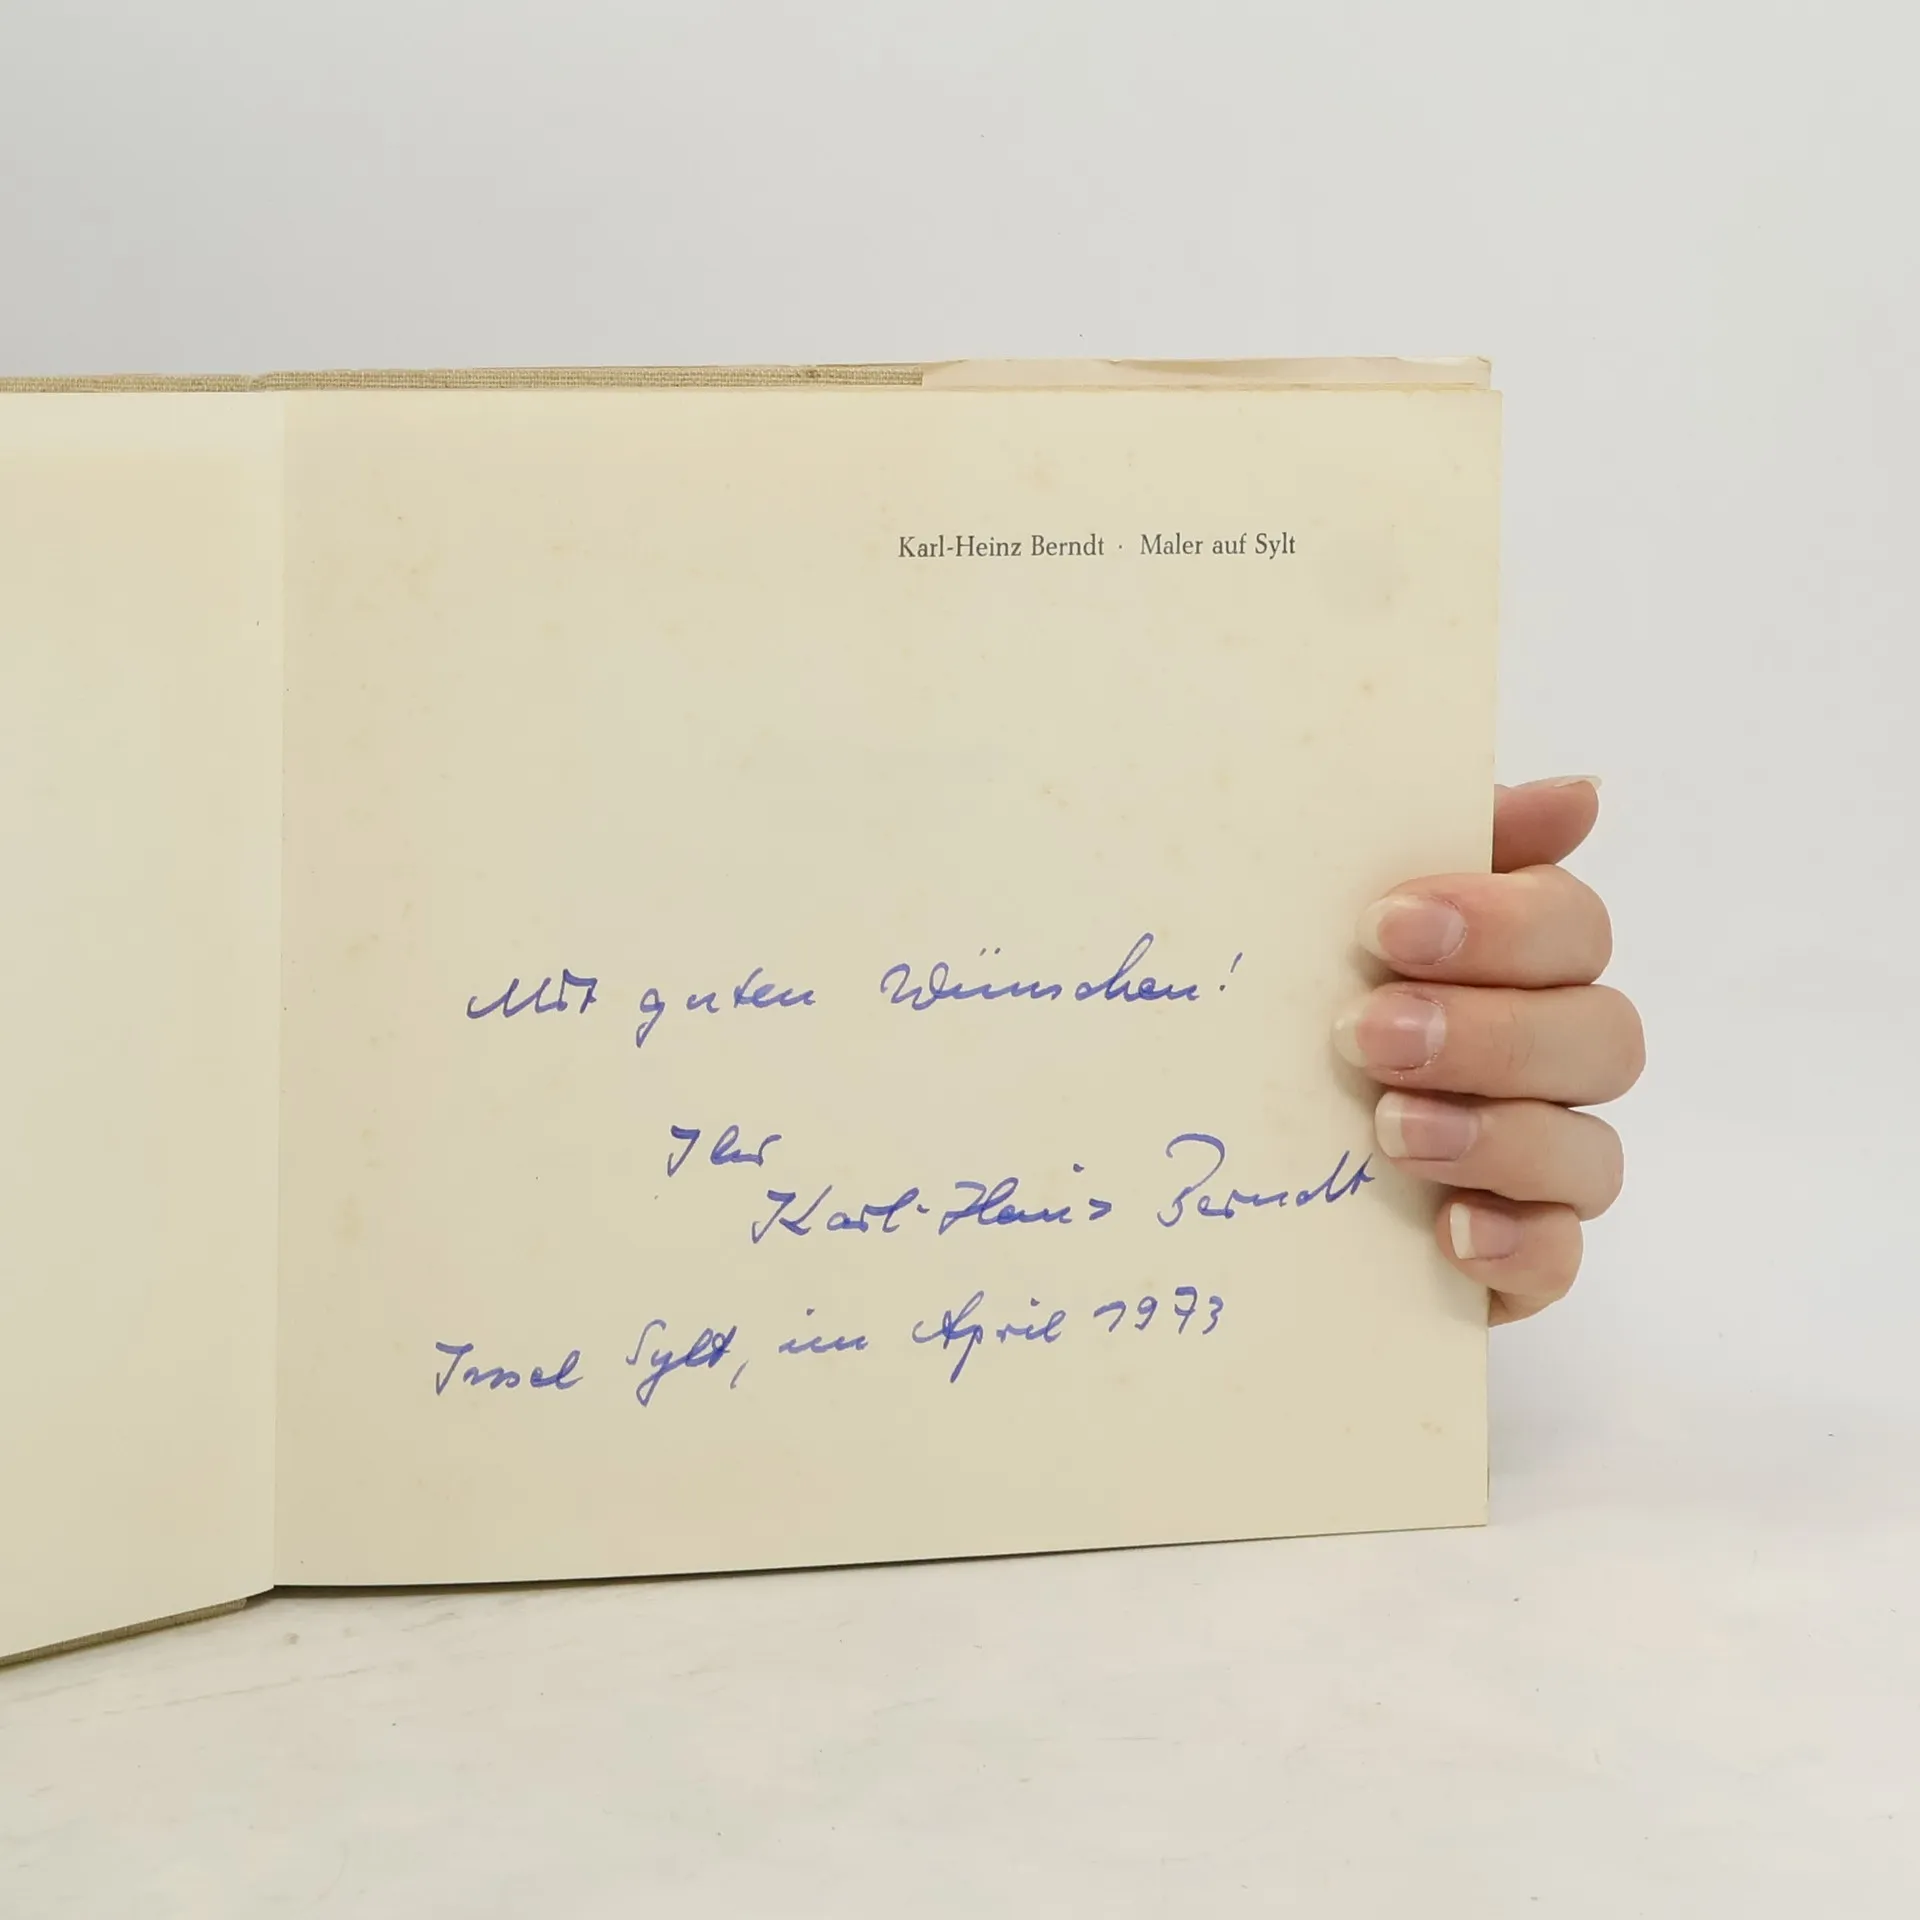 Karl-Heinz Berndt · Maler auf Sylt
Mit guten Wünschen!
Ihr
Karl-Heinz Berndt
Insel Sylt, im April 1973